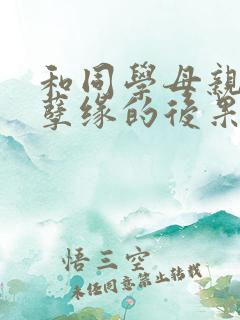 和同學母親
孽缘的後果
悟三空
未经同意禁止转载